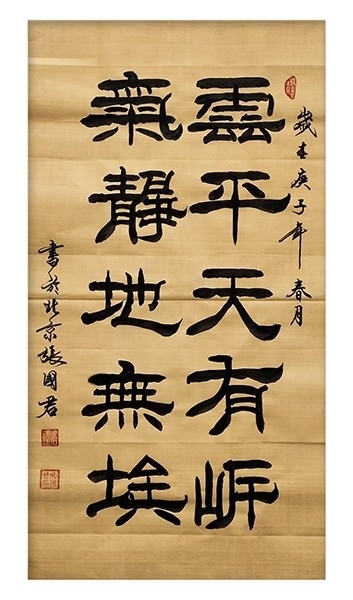 歲在庚子年 春月
雲平天有
氣靜地無埃
書於北京張國君